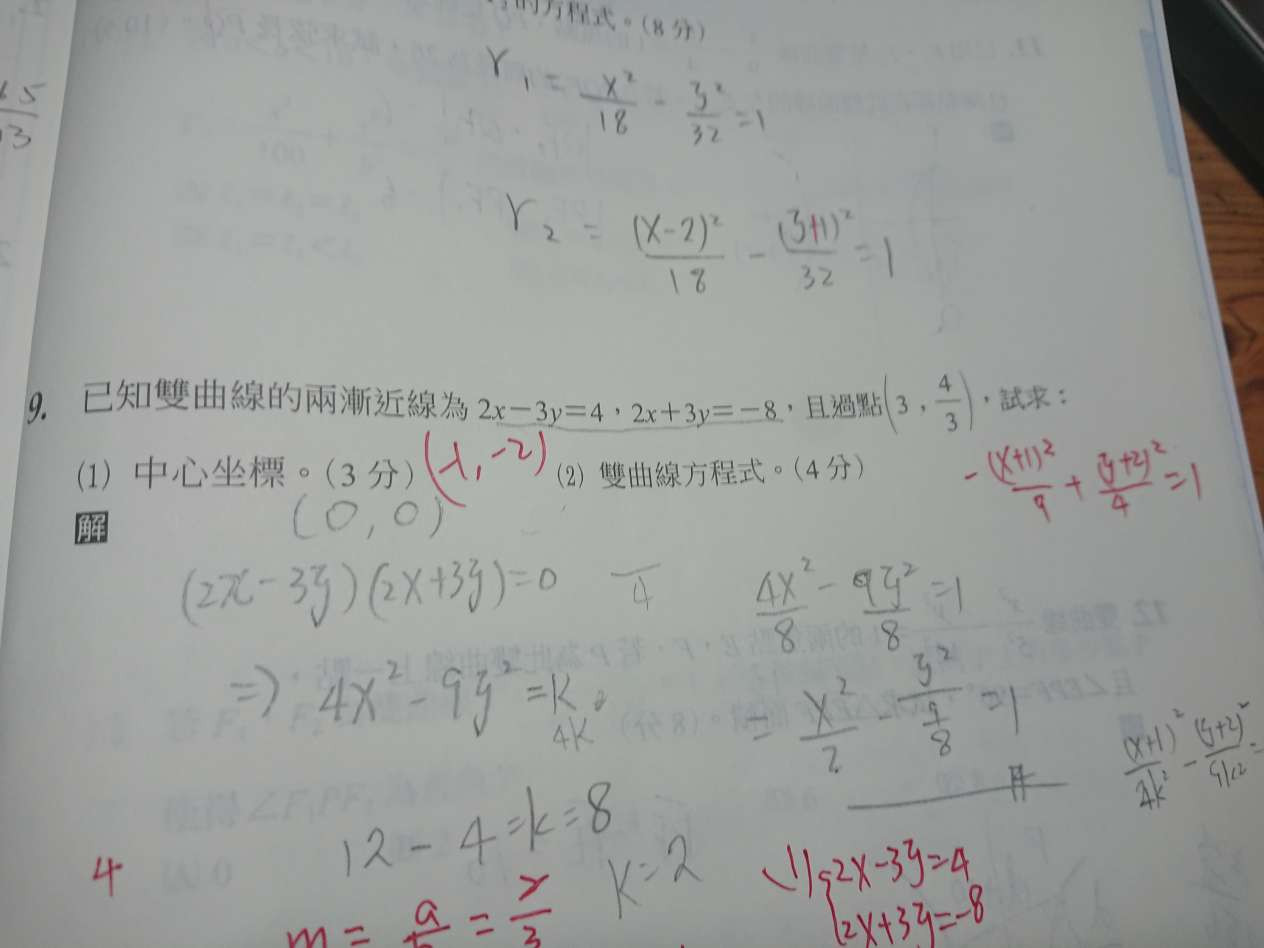 的方程式。(8分)
r₁ = x²/18 - y²/32 = 1
15/13
r₂ = (x-2)²/18 - (y+1)²/32 = 1
9. 已知雙曲線的兩漸近線為 2x-3y=4，2x+3y=-8，且過點(3，4/3)，試求：
(1) 中心坐標。(3分) (-1,-2) (2) 雙曲線方程式。(4分)
-(x+1)²/9 + (y+2)²/4 = 1
解
(0,0)
(2x-3y)(2x+3y)=0
4
4x²/8 - 9y²/8 = 1
⇒ 4x²-9y²=k
4k
= x²/2 - y²/(9/8) = 1
(x+1)²/4k² - (y+2)²/9k² =
12-4=k=8
k=2
4
(1) 2x-3y=4
2x+3y=-8
m = a/b = 2/3